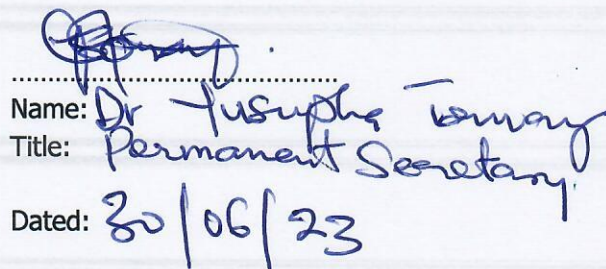 Name: Dr Yusupha Touray
Title: Permanent Secretary.
Dated: 30/06/23